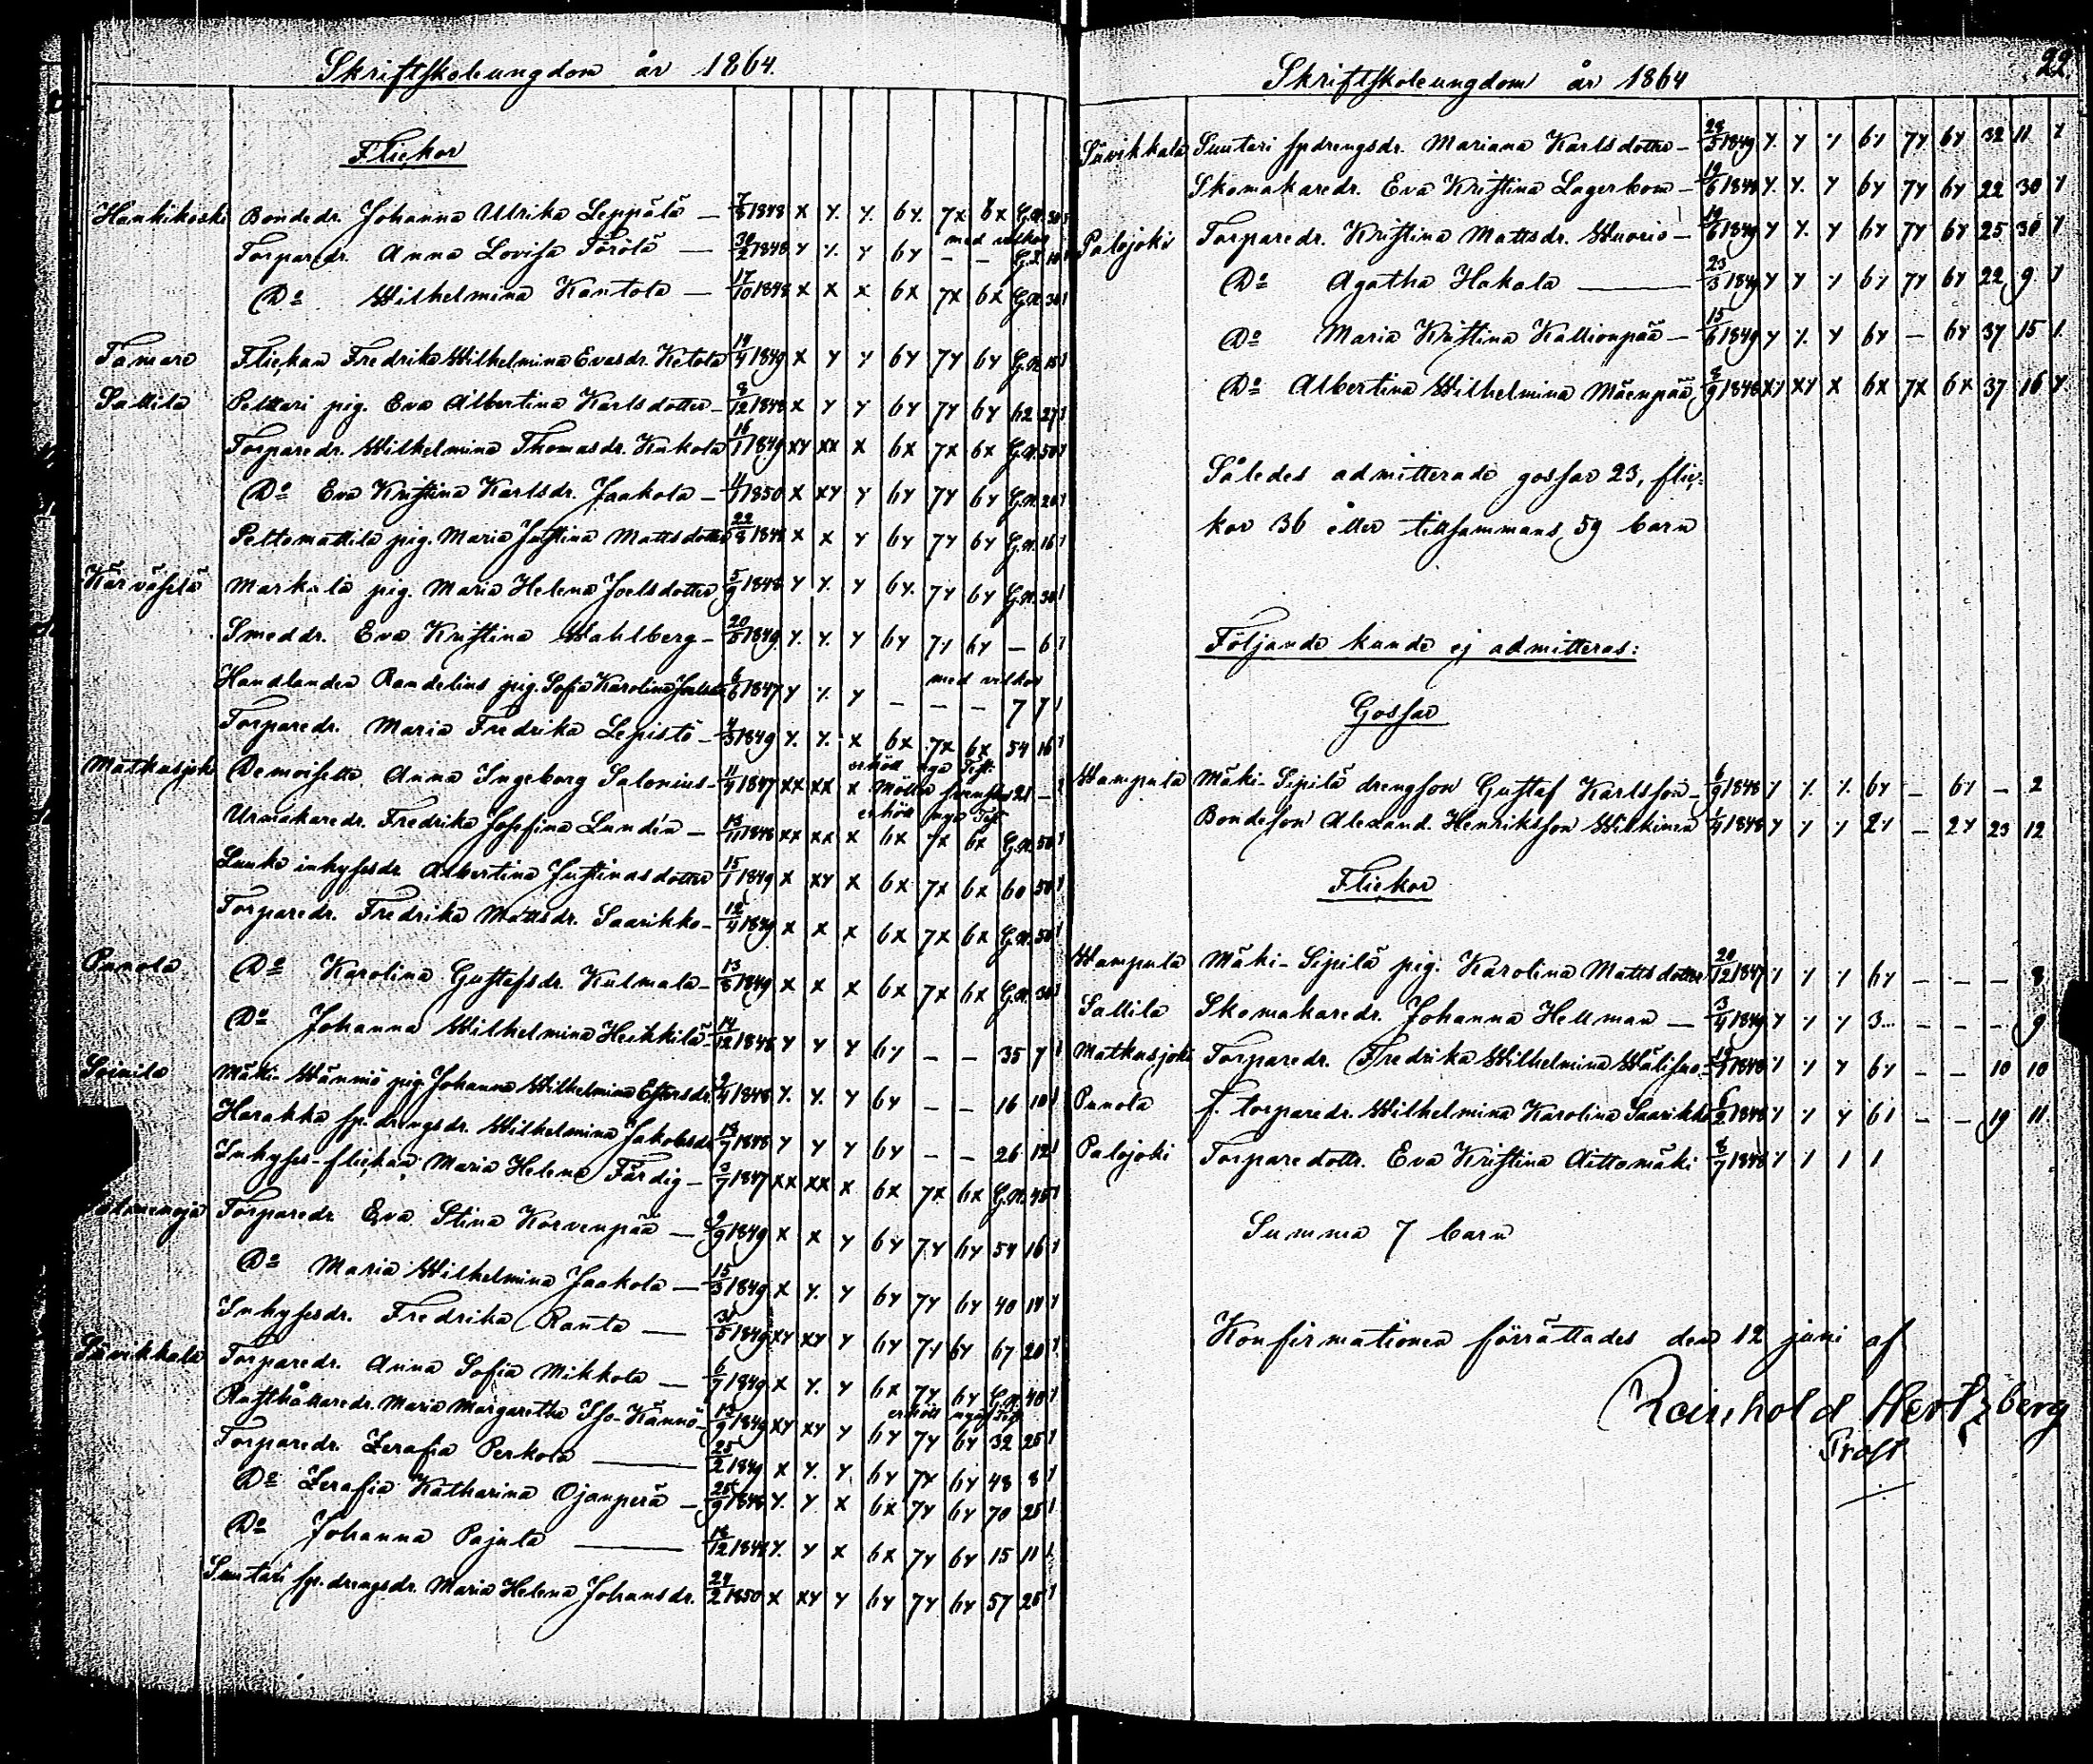 Skriftskoleungdom år 1864.
Flickor
Hankikoski Bondedr. Johanna Ulrika Leppälä — 7/8 1848 x y y. 6y. 7x 6x G.N. 30 y
med vilkor
Torparedr. Anna Lovisa Törölä — 30/2 1848 y y. y 6y — — G.T. 10 y
Do Wilhelmina Kantola — 17/10 1848 x x x 6x 7x 6x G.N. 30 y
Tamare Flickan Fredrika Wilhelmina Evasdr. Ketola 14/4 1849 x y y 6y 7y 6y G.N. 15 y
Sallila Pelttari pig. Eva Albertina Karlsdotter — 8/12 1848 x y y 6y 7y 6y 62 27 y
Torparedr. Wilhelmina Thomasdr. Kukola 16/1 1849 xy xx x 6x 7x 6x G.N. 50 y
Do Eva Kristina Karlsdr. Jaakola — 1850 x xy y 6y 7y 6y G.N. 20 y
Peltomattila pig. Maria Justina Mattsdotter 22/8 1848 x x y 6y 7y 6y G.N. 16 y
Kärväselä Markula pig. Maria Helena Joelsdotter 5/9 1848 y y. y 6y. 7y 6y G.N. 30 y
Smeddr. Eva Kristina Wahlberg — 20/5 1849 y. y. y 6y 7y 6y — 6 y
med vilkor
Handlanden Randelins pig. Sofia Karolina 6/6 1847 y y. y — — — 7 7 y
Torparedr. Maria Fredrika Lepistö — 4/3 1849 y. y. x 6x 7x 6x 54 16 y
erhöll nya Test.
Matkusjoki Demoiselle Anna Ingeborg Salonius — 11/4 1847 xx xx x 21 — y
erhöll nya Test.
Urmakaredr. Fredrika Josefina Lundén — 13/11 1848 xx xx x 6x 7x 6x G.N. 50 y
Lauko inhysesdr. Albertina Justinasdotter 15/1 1849 x xy x 6x 7x 6x 60 50 y
Torparedr. Fredrika Mattsdr. Saarikko — 12/4 1849 x x x 6x 7x 6x G.N. 50 y
Punola Do Karolina Gustafsdr. Kulmala — 13/8 1849 x x x 6x 7x 6x G.N. 30 y
Do Johanna Wilhelmina Heikkilä — 14/12 1848 y y y 6y — — 35 7 y
Soinila Mäki-Wänniö pig. Johanna Wilhelmina Estersdr. 2/4 1848 y. y. y 6y — — 16 10 y
Harakka sp. drengsdr. Wilhelmina Jakobsdr. 13/7 1848 y y y 6y — — 26 12 y
Inhyses-flickan Maria Helena Färdig — 3/7 1847 xx xx x 6x 7x 6x G.N. 45 y
Torparedr. Eva Stina Korvenpää — 9/9 1849 x x y 6y 7y 6y 54 16 y
Do Maria Wilhelmina Jaakola — 15/3 1849 x y. y 6y 7y 6y 40 14 y
Inhysesdr. Fredrika Ranta — 31/5 1849 xy xy y 6y 7y 6y 67 20 y
Sävikkala Torparedr. Anna Sofia Mikkola — 6/7 1849 x y. y 6x 7y 6y G.N. 40 y
erhöll nya Test.
Rusthållaredr. Maria Margaretha Iso-Kännö — 13/9 1849 xy xy y 6y 7y 6y 32 25 y
Torparedr. Serafia Perkola — 25/2 1849 x y. y. 6y 7y 6y 48 8 y
Do Serafia Katharina Ojanperä — 25/9 1848 y. y x 6x 7y 6y 70 25 y
Do Johanna Pajula — 18/12 1848 y. y x 6x 7y 6y 15 11 y
Suutari sp. drengsdr. Maria Helena Johansdr. 24/2 1850 x xy y 6y 7y 6y 57 25 y
Skriftskoleungdom år 1864
22.
Sävikkala Suutari spdrengsdr. Mariana Karlsdotter — 28/5 1849 y. y y 6y 7y 6y 32 11. y
Skomakaredr. Eva Kristina Lagerbom — 19/6 1848 y. y. y 6y 7y 6y 22 30 y
Palojoki Torparedr. Kristina Mattsdr. Wuorio — 19/6 1849 y y. y 6y 7y 6y 25 30 y
Do Agatha Hakala — 23/3 1849 y y y 6y 7y 6y 22 9 y
Do Maria Kristina Kallionpää — 15/6 1849 y y. y 6y — 6y 37 15 y.
Do Albertina Wilhelmina Mäenpää 8/9 1848 xy xy x 6x 7x 6x 37 16 y
Således admitterade gossar 23, flic-
kor 36 eller tillsammans 59 barn
Följande kunde ej admitteras:
Gossar
Wampula Mäki-Sipilä drengson Gustaf Karlsson — 6/9 1848 y y. y. 6y — 6y — 2
Bondeson Alexand. Henriksson Wirkinen 1/4 1848 y y y 2y — 2y 23 12
Flickor
Wampula Mäki-Sipilä pig. Karolina Mattsdotter 20/12 1847 y y y 6y — — — 8
Sallila Skomakaredr. Johanna Hellman — 3/4 1849 y y y 3... — — — 9
Matkusjoki Torparedr. Fredrika Wilhelmina 1848 y y y 6y — — 10 10
Punola f. torparedr. Wilhelmina Karolina Saarikko 6/2 1848 y y y 6y — — 19 11.
Palojoki Torparedottr. Eva Kristina Aittomäki 8/7 1848 y y y y
Summa 7 barn
Konfirmationen förrättades den 12 juni af
Reinhold Hertzberg
Prost